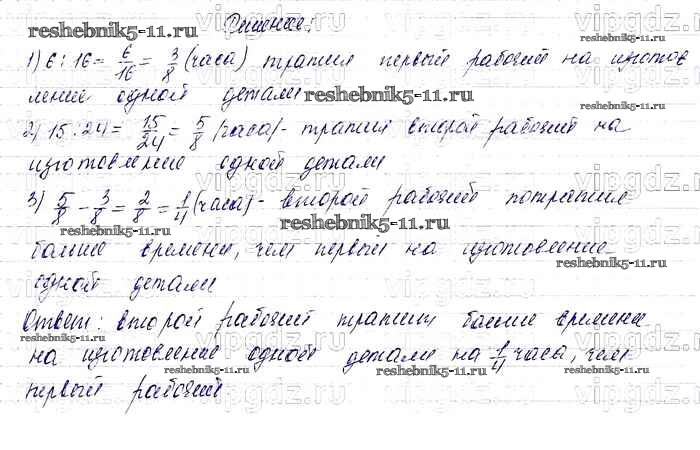 Решение:
1) 6 : 16 = 6/16 = 3/8 (часа) тратил первый рабочий на изготов
ление одной детали
2) 15 : 24 = 15/24 = 5/8 (часа) - тратил второй рабочий на
изготовление одной детали
3) 5/8 - 3/8 = 2/8 = 1/4 (часа) - второй рабочий потратил
больше времени, чем первый на изготовление
одной детали
Ответ: второй рабочий тратил больше времени
на изготовление одной детали на 1/4 часа, чем
первый рабочий
reshebnik5-11.ru
vipgdz.ru